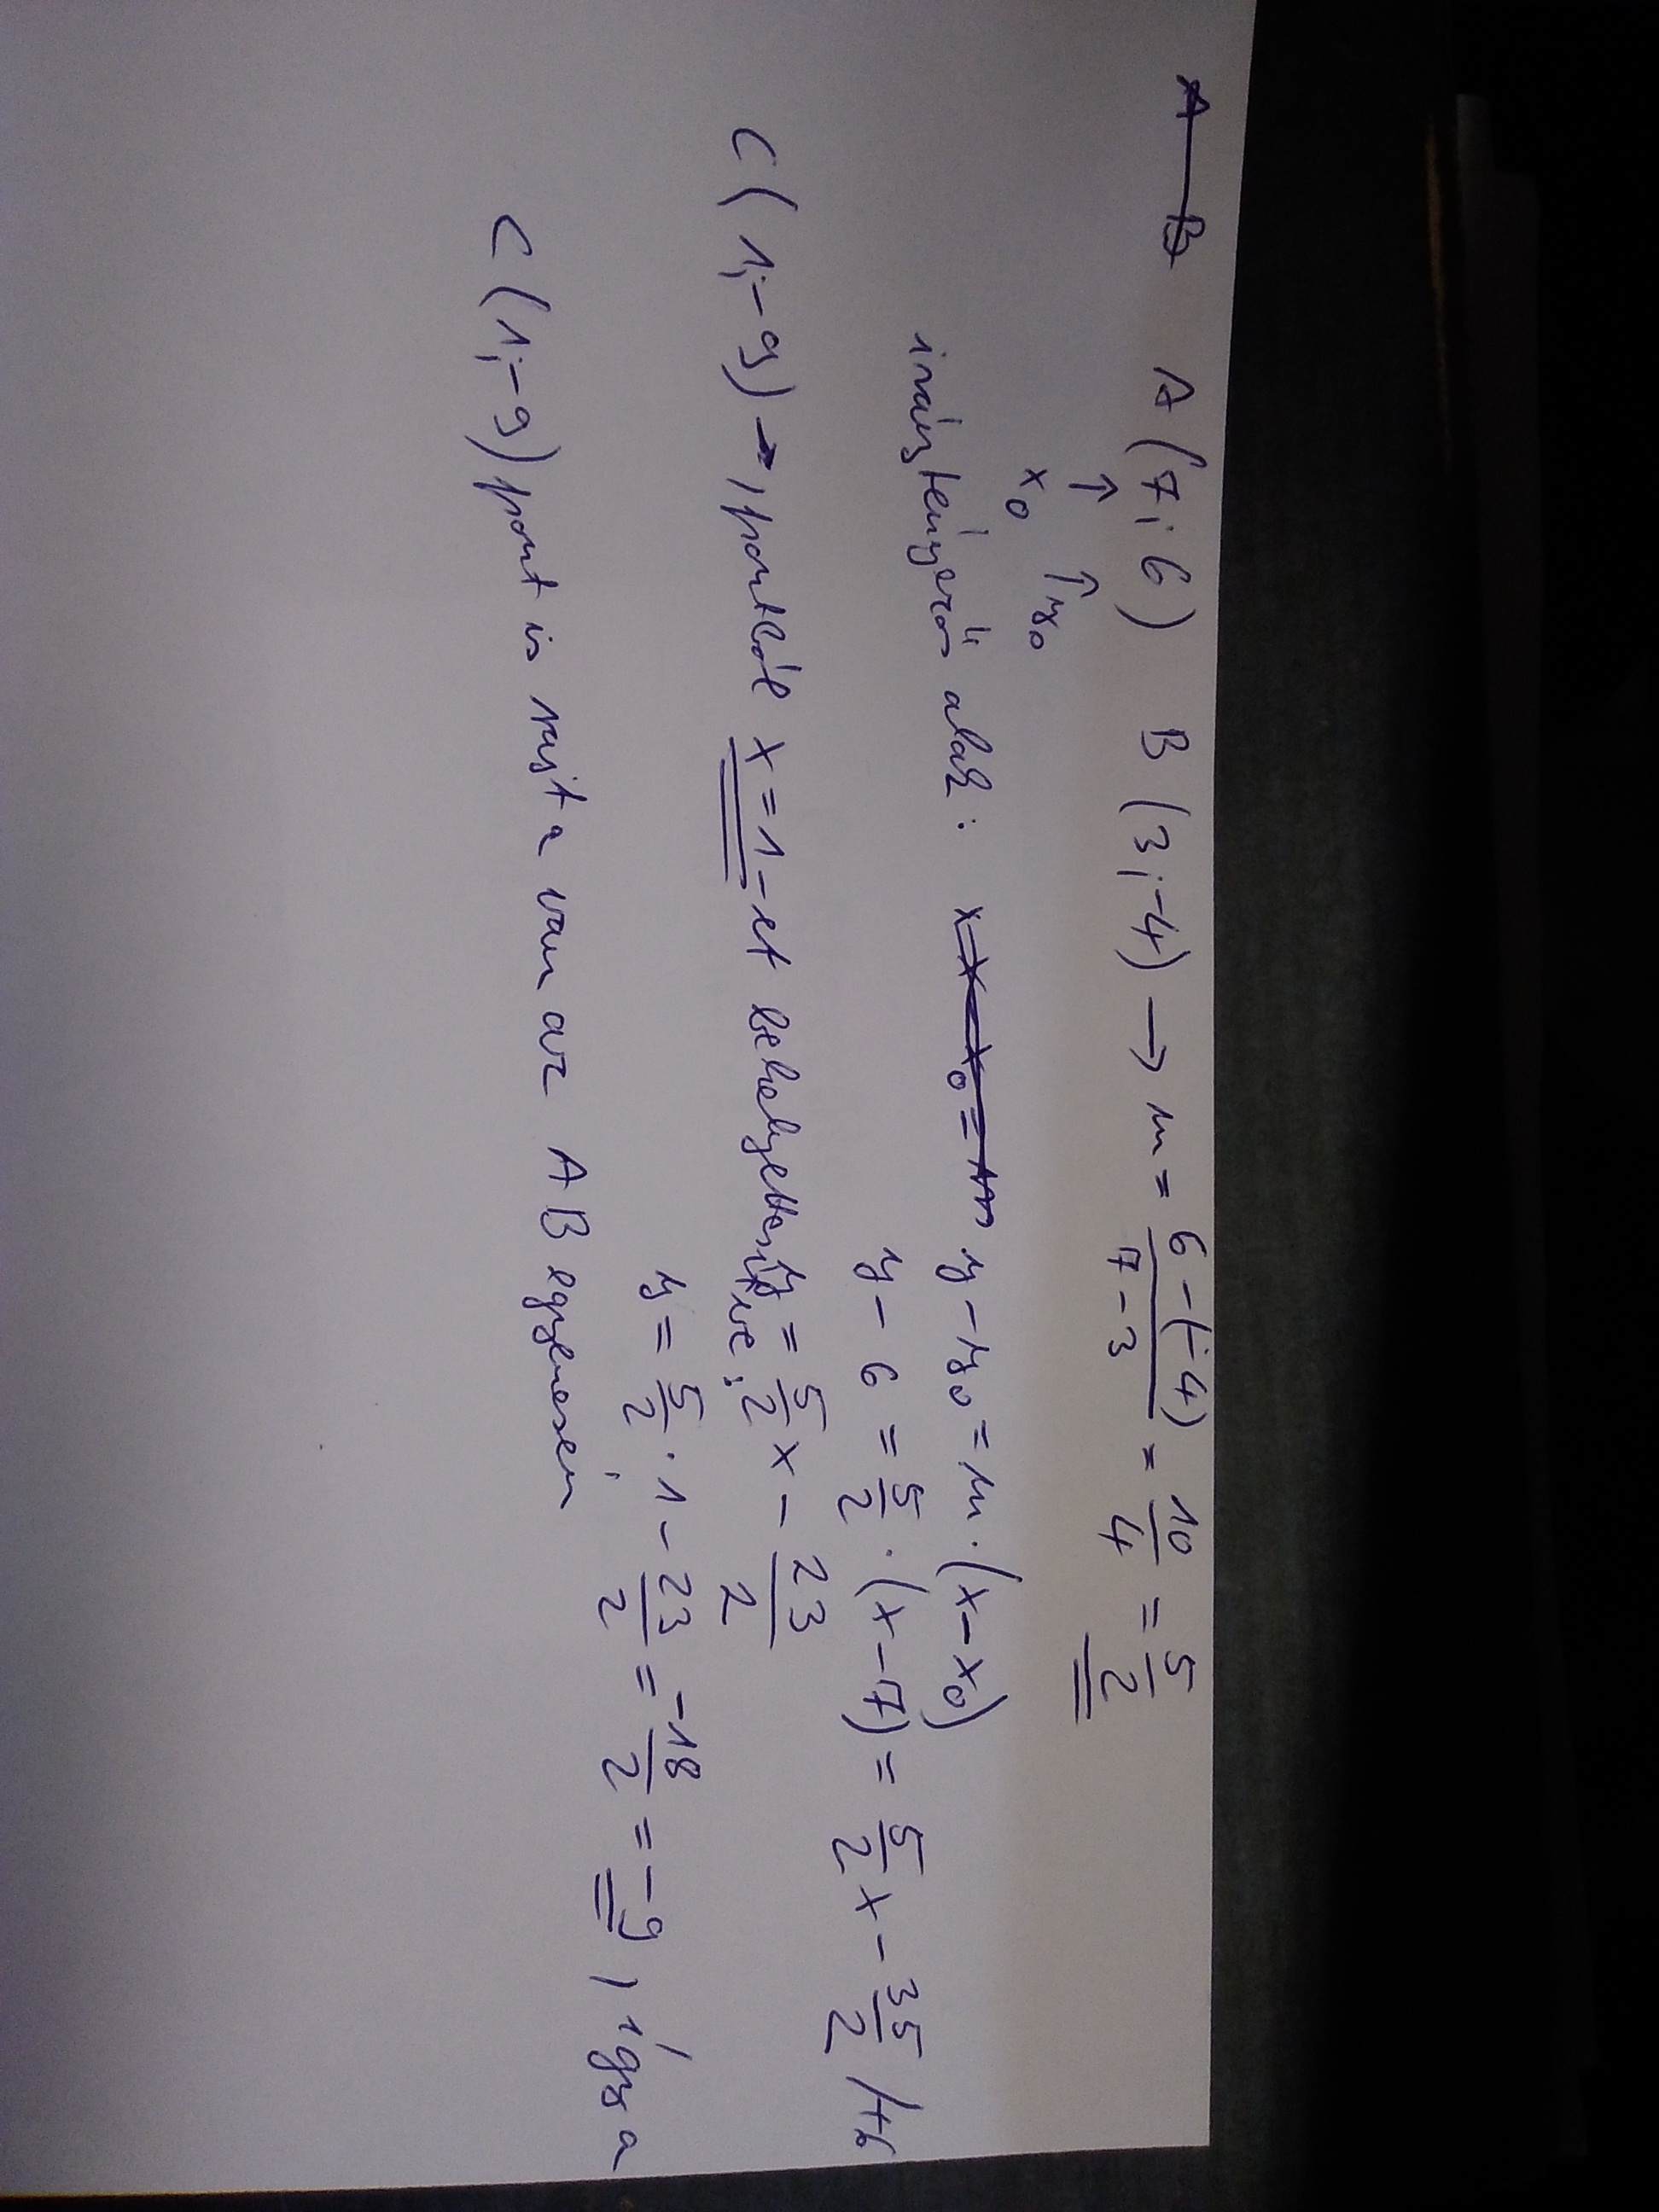 A B A(7; 6) B(3; -4) → m = 6-(-4)/7-3 = 10/4 = 5/2
↑ ↑
x₀ y₀
iránytényezős alak: x - x₀ = m y - y₀ = m · (x - x₀)
y - 6 = 5/2 · (x - 7) = 5/2 x - 35/2 /+6
y = 5/2 x - 23/2
C(1; -9) → pontból x = 1-et behelyettesítve:
y = 5/2 · 1 - 23/2 = -18/2 = -9, így a
C(1; -9) pont is rajta van az AB egyenesen